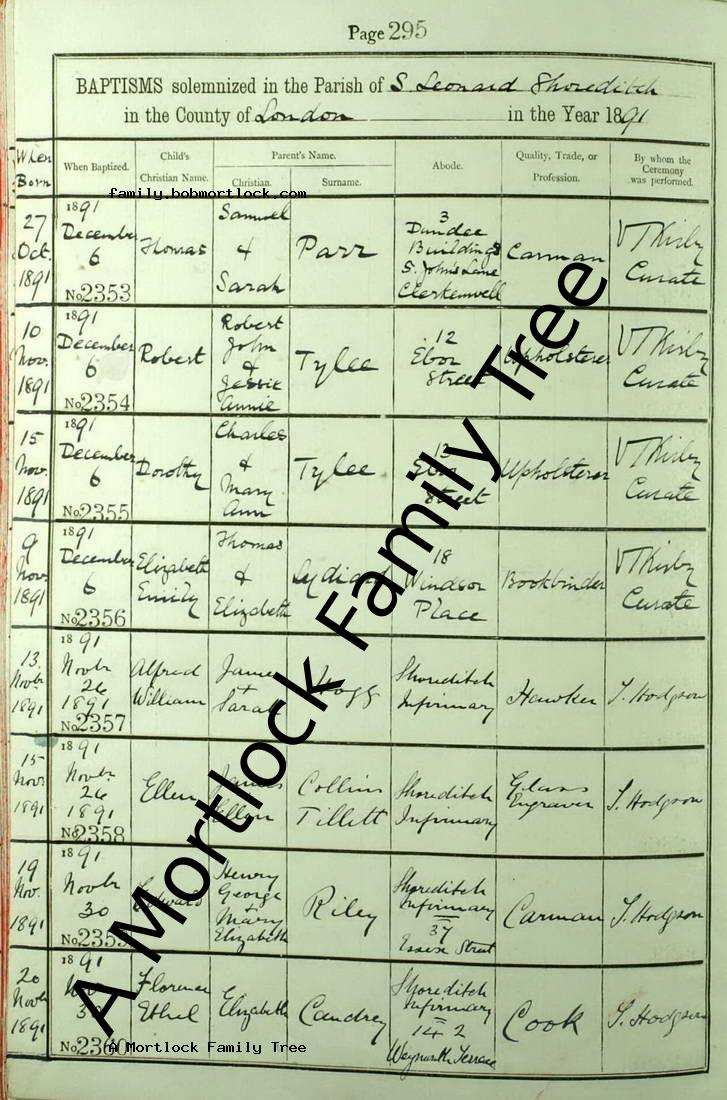 Page 295
BAPTISMS solemnized in the Parish of S. Leonard Shoreditch
in the County of London in the Year 1891
When Born
When Baptized.
Child's Christian Name.
Parent's Name.
Christian.
Surname.
Abode.
Quality, Trade, or Profession.
By whom the Ceremony was performed.
family.bobmortlock.com
27 Oct. 1891
1891 December 6
No 2353
Thomas
Samuel & Sarah
Parr
3 Dundee Buildings S. Johns Lane Clerkenwell
Carman
V T Kirby Curate
10 Nov. 1891
1891 December 6
No 2354
Robert
Robert John & Jessie Annie
Tylee
12 Ebor Street
Upholsterer
V T Kirby Curate
15 Nov. 1891
1891 December 6
No 2355
Dorothy
Charles & Mary Ann
Tylee
13 Ebor Street
Upholsterer
V T Kirby Curate
9 Nov. 1891
1891 December 6
No 2356
Elizabeth Emily
Thomas & Elizabeth
Lydiard
18 Windsor Place
Bookbinder
V T Kirby Curate
13 Novbr 1891
1891 Novbr 26 1891
No 2357
Alfred William
James + Sarah
Hogg
Shoreditch Infirmary
Hawker
T. Hodgson
15 Novr 1891
1891 Novbr 26 1891
No 2358
Ellen
James Ellen
Collins Tillett
Shoreditch Infirmary
Glass Engraver
T. Hodgson
19 Nov. 1891
1891 Novbr 30
No 2359
Edward
Henry George + Mary Elizabeth
Riley
Shoreditch Infirmary = 37 Essex Street
Carman
T. Hodgson
20 Novbr 1891
1891 30
No 2360
Florence Ethel
Elizabeth
Caudrey
Shoreditch Infirmary = 142 Terrace
Cook
T. Hodgson
A Mortlock Family Tree
A Mortlock Family Tree